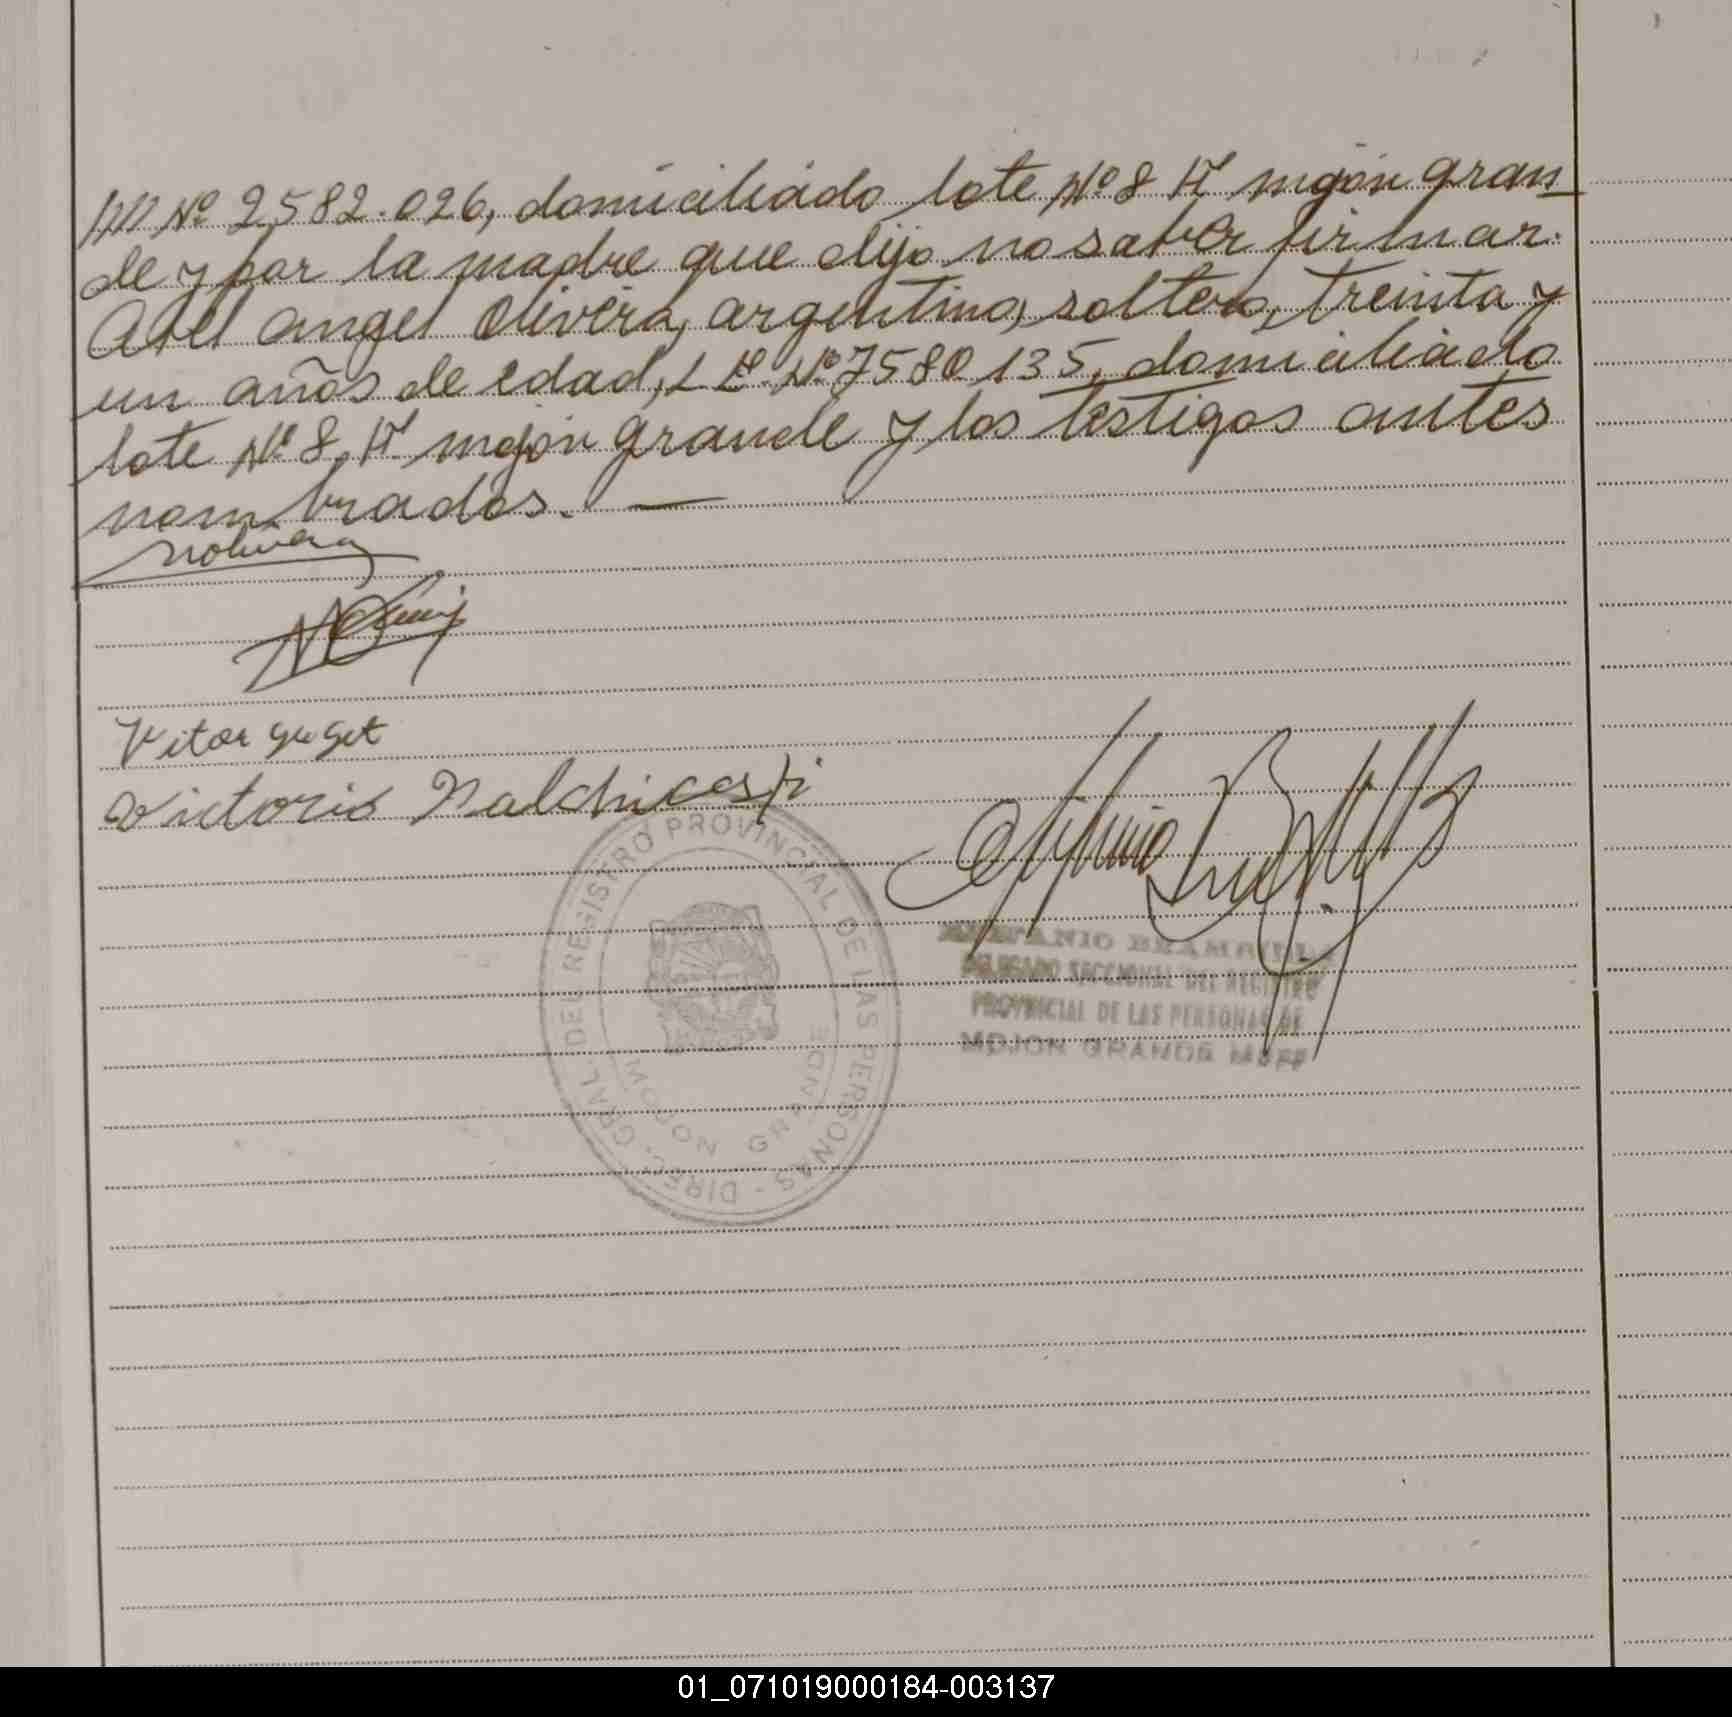 MI Nº 2582.026, domiciliado lote Nº 8 H mojón gran
de y por la madre que dijo no saber firmar.
Abel angel Olivera, argentino, soltero, treinta y
un años de edad, L E. Nº 7580 135, domiciliado
lote Nº 8. H. mojón grande y los testigos antes
nombrados. —
Victor
Victorio
DIREC. GRAL. DEL REGISTRO PROVINCIAL DE LAS PERSONAS -
MOJON GRANDE
DELEGADO SECCIONAL DEL REGISTRO
PROVINCIAL DE LAS PERSONAS DE
MOJON GRANDE
01_071019000184-003137